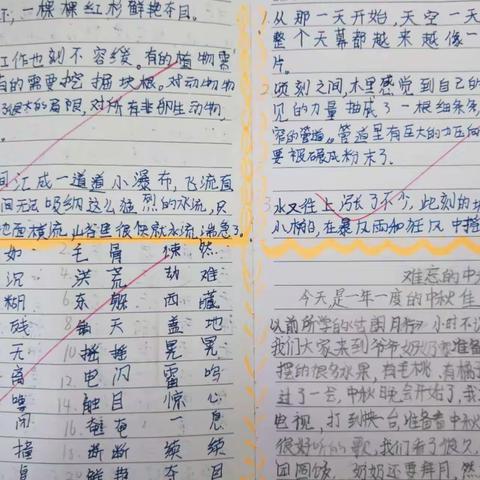 一棵棵红杉鲜艳夺目。
工作也刻不容缓。有的植物需
有的需要挖掘块根。对动物物
很大的局限,对所有非卵生动物
汇成一道道小瀑布,飞流直
间无法吸纳这么猛烈的水流,只
地面横流,山谷里很快就水满
如 2. 毛骨悚然
沉 4. 洪荒劫难
糊 6. 东躲西藏
残 8. 铺天盖地
天 10. 摇摇晃晃
离 12. 电闪雷鸣
14. 触目惊心
闭 16. 奄奄一息
撞 18. 断断续续
鲜艳夺目
1. 从那一天开始,天空一天
整个天幕都越来越像一
片。
2. 顷刻之间,木里感觉到自己的
见的力量抽成了一根细条条
窄的管道。管道里有巨大的力压向
要被碾成粉末了。
3. 水又往上涨了不少,此刻的
小柏白,在暴风雨和狂风中摇
难忘的中
今天是一年一度的中秋佳
以前所学的《古朗月行》小时不识
我们大家来到爷爷奶奶家准备
摆的很多水果,有毛桃,有橘
过了一会,中秋晚会开始了,我
电视,打到快台,准备看中秋
很好听的歌,我们看了很久,
团圆饭,奶奶还要拜月,然